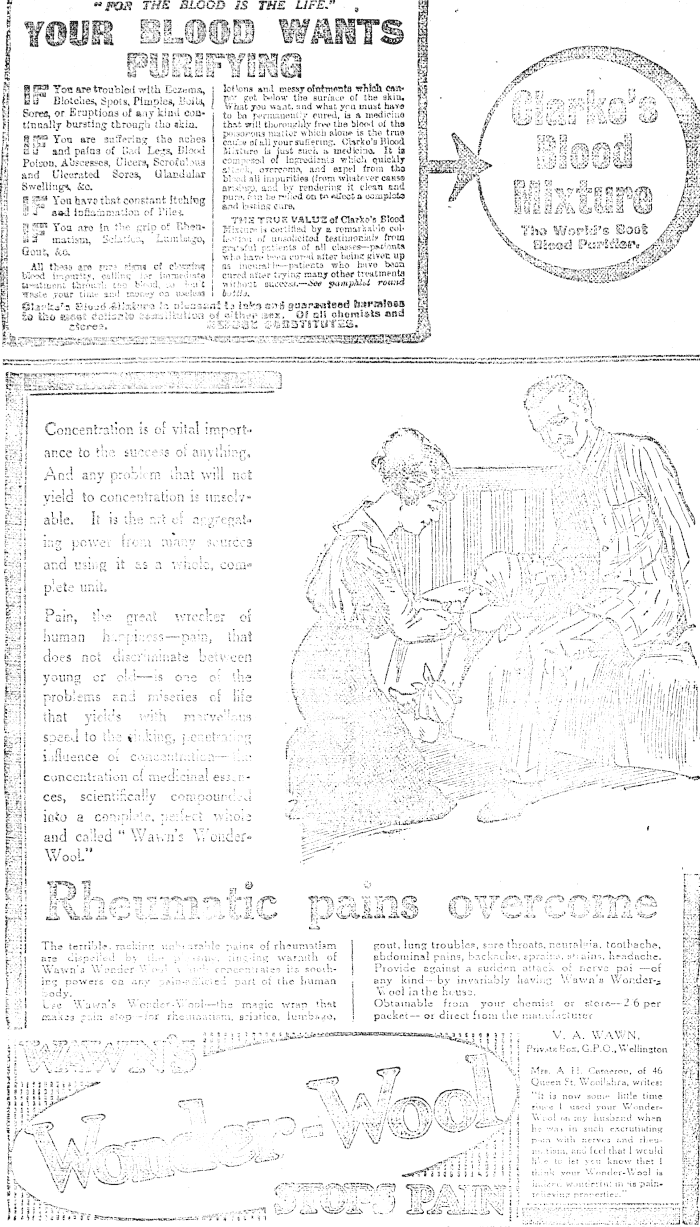 "FOR THE BLOOD IS THE LIFE."
YOUR BLOOD WANTS
PURIFYING
IF You are troubled with Eczema,
Blotches, Spots, Pimples, Boils,
Sores, or Eruptions of any kind con-
tinually bursting through the skin.
IF You are suffering the aches
and pains of Bad Legs, Blood
Poison, Abscesses, Ulcers, Scrofulous
and Ulcerated Sores, Glandular
Swellings, &c.
IF You have that constant Itching
and Inflammation of Piles.
IF You are in the grip of Rheu-
matism, Sciatica, Lumbago,
Gout, &c.
All these are sure signs of clogging
blood impurity, calling for immediate
treatment through the blood, so don't
waste your time and money on useless
lotions and messy ointments which can-
not get below the surface of the skin.
What you want, and what you must have
to be permanently cured, is a medicine
that will thoroughly free the blood of the
poisonous matter which alone is the true
cause of all your suffering. Clarke's Blood
Mixture is just such a medicine. It is
composed of ingredients which quickly
attack, overcome, and expel from the
blood all impurities (from whatever cause
arising), and by rendering it clean and
pure, can be relied on to effect a complete
and lasting cure.
THE TRUE VALUE of Clarke's Blood
Mixture is certified by a remarkable col-
lection of unsolicited testimonials from
grateful patients of all classes—patients
who have been cured after being given up
as incurable—patients who have been
cured after trying many other treatments
without success.—See pamphlet round
bottle.
Clarke's Blood Mixture is pleasant to take and guaranteed harmless
to the most delicate constitution of either sex. Of all chemists and
stores. REFUSE SUBSTITUTES.
Clarke's
Blood
Mixture
The World's Best
Blood Purifier.
Concentration is of vital import-
ance to the success of anything.
And any problem that will not
yield to concentration is unsolv-
able. It is the art of aggregat-
ing power from many sources
and using it as a whole, com-
plete unit.
Pain, the great wrecker of
human happiness—pain, that
does not discriminate between
young or old—is one of the
problems and miseries of life
that yields with marvellous
speed to the penetrating
influence of concentration—the
concentration of medicinal essen-
ces, scientifically compounded
into a complete, perfect whole
and called "Wawn's Wonder-
Wool."
Rheumatic pains overcome
The terrible, racking unbearable pains of rheumatism
are dispelled by the tingling warmth of
Wawn's Wonder Wool which concentrates its sooth-
ing powers on any pain-afflicted part of the human
body.
Use Wawn's Wonder-Wool—the magic wrap that
makes pain stop—for rheumatism, sciatica, lumbago,
gout, lung troubles, sore throats, neuralgia, toothache,
abdominal pains, backache, sprains, strains, headache.
Provide against a sudden attack of nerve pai —of
any kind—by invariably having Wawn's Wonder-
Wool in the house.
Obtainable from your chemist or store—2 6 per
packet—or direct from the manufacturer
V. A. WAWN,
Private Box, G.P.O., Wellington
Mrs. A H. Cameron, of 46
Queen St. Woollahra, writes:
"It is now some little time
since I used your Wonder-
Wool on my husband when
he was in such excruciating
pain with nerves and rheu-
matism, and feel that I would
like to let you know that I
think your Wonder-Wool is
indeed wonderful in its pain-
relieving properties."
WAWN'S
Wonder-Wool
STOPS PAIN